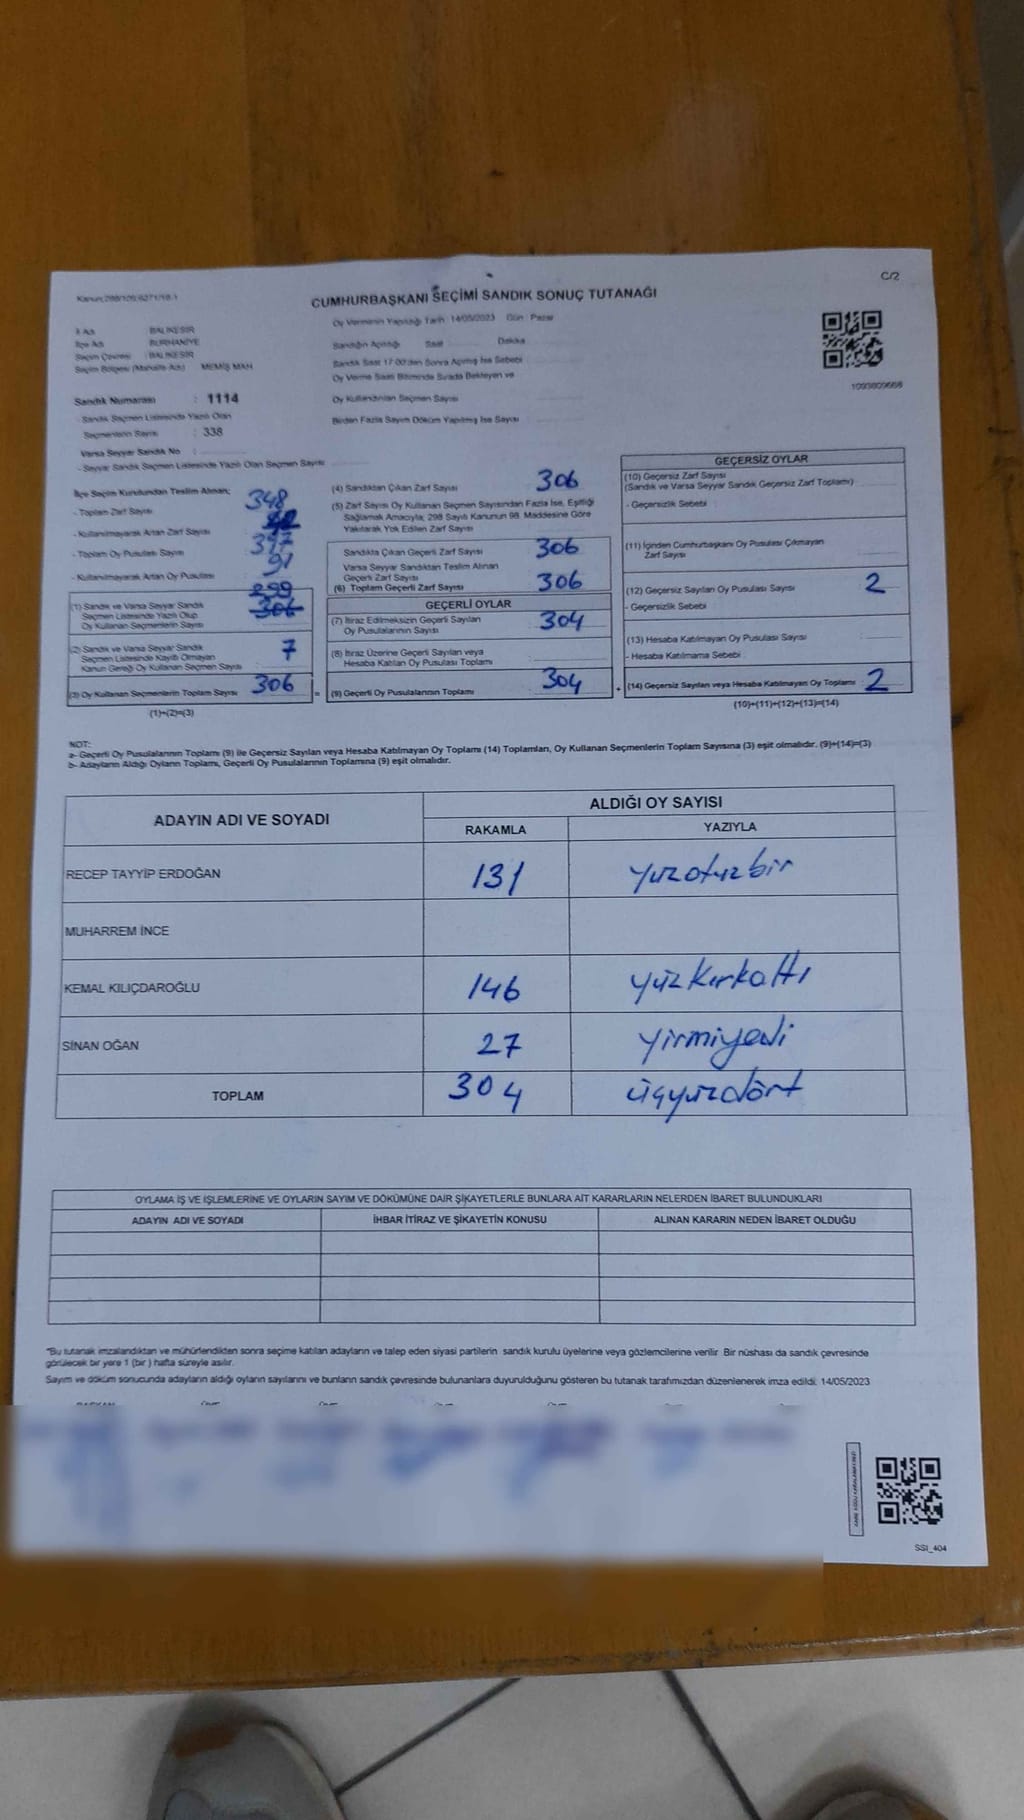 C/2
CUMHURBAŞKANI SEÇİMİ SANDIK SONUÇ TUTANAĞI
İl Adı BALIKESİR
İlçe Adı BURHANİYE
Seçim Çevresi : BALIKESİR
Seçim Bölgesi (Mahalle Adı) MEMİŞ MAH
Sandık Numarası : 1114
Sandık Seçmen Listesinde Yazılı Olan
Seçmenlerin Sayısı : 338
Varsa Seyyar Sandık No :
- Seyyar Sandık Seçmen Listesinde Yazılı Olan Seçmen Sayısı
Oy Vermenin Yapıldığı Tarih 14/05/2023 Gün : Pazar
Sandığın Açıldığı Saat Dakika
Sandık Saat 17:00'den Sonra Açılmış İse Sebebi
Oy Verme Saati Bitiminde Sırada Bekleyen ve
Oy Kullandırılan Seçmen Sayısı
Birden Fazla Sayım Döküm Yapılmış İse Sayısı
1093809668
İlçe Seçim Kurulundan Teslim Alınan;
- Toplam Zarf Sayısı 348
- Kullanılmayarak Artan Zarf Sayısı
- Toplam Oy Pusulası Sayısı
- Kullanılmayarak Artan Oy Pusulası 91
299
(1) Sandık ve Varsa Seyyar Sandık 306
Seçmen Listesinde Yazılı Olup
Oy Kullanan Seçmenlerin Sayısı
(2) Sandık ve Varsa Seyyar Sandık 7
Seçmen Listesinde Kayıtlı Olmayan
Kanun Gereği Oy Kullanan Seçmen Sayısı
(3) Oy Kullanan Seçmenlerin Toplam Sayısı 306 =
(1)+(2)=(3)
(4) Sandıktan Çıkan Zarf Sayısı 306
(5) Zarf Sayısı Oy Kullanan Seçmen Sayısından Fazla İse, Eşitliği
Sağlamak Amacıyla; 298 Sayılı Kanunun 98. Maddesine Göre
Yakılarak Yok Edilen Zarf Sayısı
Sandıkta Çıkan Geçerli Zarf Sayısı 306
Varsa Seyyar Sandıktan Teslim Alınan
Geçerli Zarf Sayısı
(6) Toplam Geçerli Zarf Sayısı 306
GEÇERLİ OYLAR
(7) İtiraz Edilmeksizin Geçerli Sayılan 304
Oy Pusulalarının Sayısı
(8) İtiraz Üzerine Geçerli Sayılan veya
Hesaba Katılan Oy Pusulası Toplamı
(9) Geçerli Oy Pusulalarının Toplamı 304 +
GEÇERSİZ OYLAR
(10) Geçersiz Zarf Sayısı
(Sandık ve Varsa Seyyar Sandık Geçersiz Zarf Toplamı)
- Geçersizlik Sebebi :
(11) İçinden Cumhurbaşkanı Oy Pusulası Çıkmayan
Zarf Sayısı
(12) Geçersiz Sayılan Oy Pusulası Sayısı 2
- Geçersizlik Sebebi :
(13) Hesaba Katılmayan Oy Pusulası Sayısı
- Hesaba Katılmama Sebebi :
(14) Geçersiz Sayılan veya Hesaba Katılmayan Oy Toplamı : 2
(10)+(11)+(12)+(13)=(14)
NOT:
a- Geçerli Oy Pusulalarının Toplamı (9) ile Geçersiz Sayılan veya Hesaba Katılmayan Oy Toplamı (14) Toplamları, Oy Kullanan Seçmenlerin Toplam Sayısına (3) eşit olmalıdır. (9)+(14)=(3)
b- Adayların Aldığı Oyların Toplamı, Geçerli Oy Pusulalarının Toplamına (9) eşit olmalıdır.
ADAYIN ADI VE SOYADI ALDIĞI OY SAYISI
RAKAMLA YAZIYLA
RECEP TAYYİP ERDOĞAN 131 yüzotuzbir
MUHARREM İNCE
KEMAL KILIÇDAROĞLU 146 yüzkırkaltı
SİNAN OĞAN 27 yirmiyedi
TOPLAM 304 üçyüzdört
OYLAMA İŞ VE İŞLEMLERİNE VE OYLARIN SAYIM VE DÖKÜMÜNE DAİR ŞİKAYETLERLE BUNLARA AİT KARARLARIN NELERDEN İBARET BULUNDUKLARI
ADAYIN ADI VE SOYADI İHBAR İTİRAZ VE ŞİKAYETİN KONUSU ALINAN KARARIN NEDEN İBARET OLDUĞU
*Bu tutanak imzalandıktan ve mühürlendikten sonra seçime katılan adayların ve talep eden siyasi partilerin sandık kurulu üyelerine veya gözlemcilerine verilir. Bir nüshası da sandık çevresinde
görülecek bir yere 1 (bir) hafta süreyle asılır.
Sayım ve döküm sonucunda adayların aldığı oyların sayılarını ve bunların sandık çevresinde bulunanlara duyurulduğunu gösteren bu tutanak tarafımızdan düzenlenerek imza edildi. 14/05/2023
SSI_404